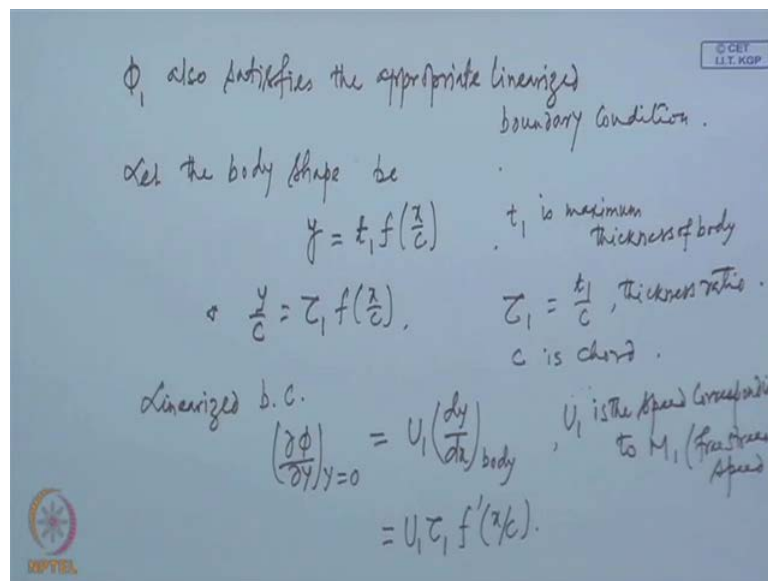 © CET
I.I.T. KGP
ϕ₁ also satisfies the appropriate linearized
boundary condition.
Let the body shape be
y = t₁ f(x/c) . t₁ is maximum
thickness of body
y/c = τ₁ f(x/c), τ₁ = t₁/c, thickness ratio.
c is chord.
Linearized b.c.
(∂ϕ/∂y)y=0 = U₁(dy/dx)body , U₁ is the speed correspondi
to M₁ (freestream
speed
= U₁ τ₁ f'(x/c).
NPTEL